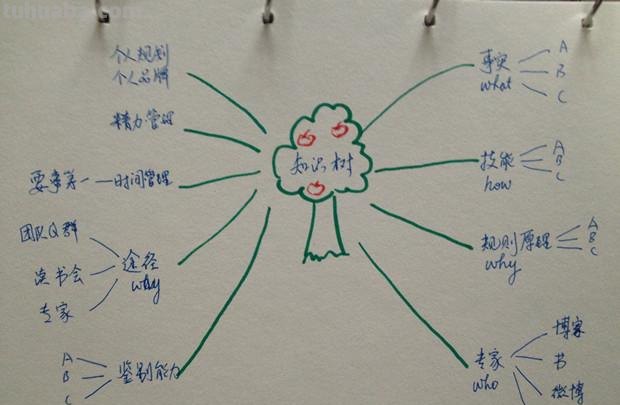 tuhuaba.com
个人规划
个人品牌
精力管理
要事第一—时间管理
团队Q群
读书会
专家
途径
why
A
B
C
鉴别能力
知识树
事实
what
A
B
C
技能
how
A
B
C
规则原理
why
A
B
C
专家
who
博客
书
微博